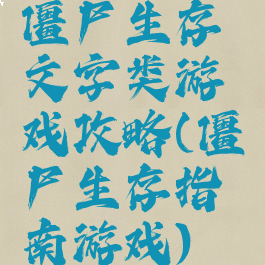 僵尸生存
文字类游
戏攻略(僵
尸生存指
南游戏)